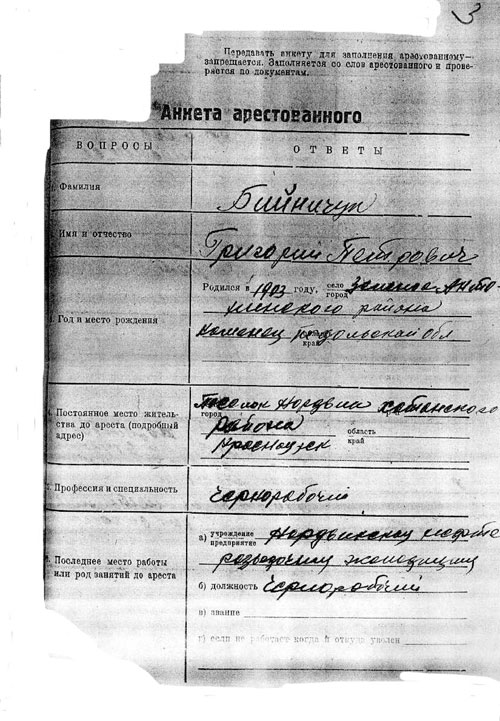 3
Передавать анкету для заполнения арестованному—
запрещается. Заполняется со слов арестованного и прове-
ряется по документам.
Анкета арестованного
ВОПРОСЫ
ОТВЕТЫ
Фамилия
Бийничук
Имя и отчество
Григорий Петрович
Год и место рождения
Родился в 1903 году, село город Зеленое
района
Каменец Подольской обл
край
Постоянное место житель-
ства до ареста (подробный
адрес)
город
Поселок Нордвик Хатангского
района
область
край
Профессия и специальность
Чернорабочий
Последнее место работы
или род занятий до ареста
а) учреждение предприятие Нордвикская нефте
разведочная экспедиция
б) должность Чернорабочий
в) звание
г) если не работает когда и откуда уволен